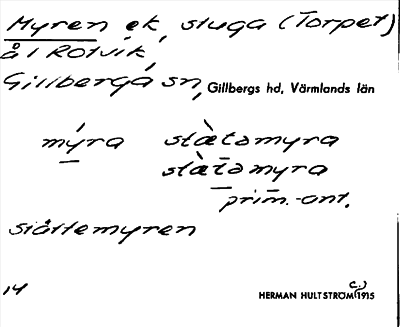 Myren ek, stuga (Torpet)
å l Rotvik,
Gillberga sn, Gillbergs hd, Värmlands län
mýra stæ̀tamyra
stæ̀tamyra
prim.-ant.
slåttemyren
14 HERMAN HULTSTRÖM (C.) 1915